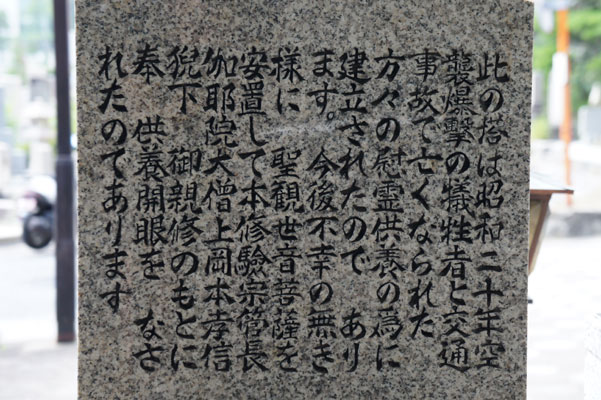 此の塔は昭和二十年空
襲爆擊の犠牲者と交通
事故で亡くなられた
方々の慰霊供養の為に
建立されたので あり
ます。今後不幸の無き
様に 聖観世音菩薩を
安置して本修験宗管長
伽耶院大僧上岡本孝信
猊下 御親修のもとに
奉 供養開眼を なさ
れたのであります